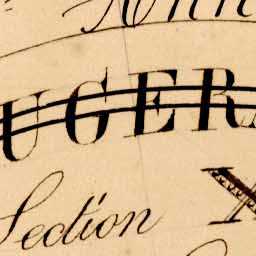 UGER
Section X